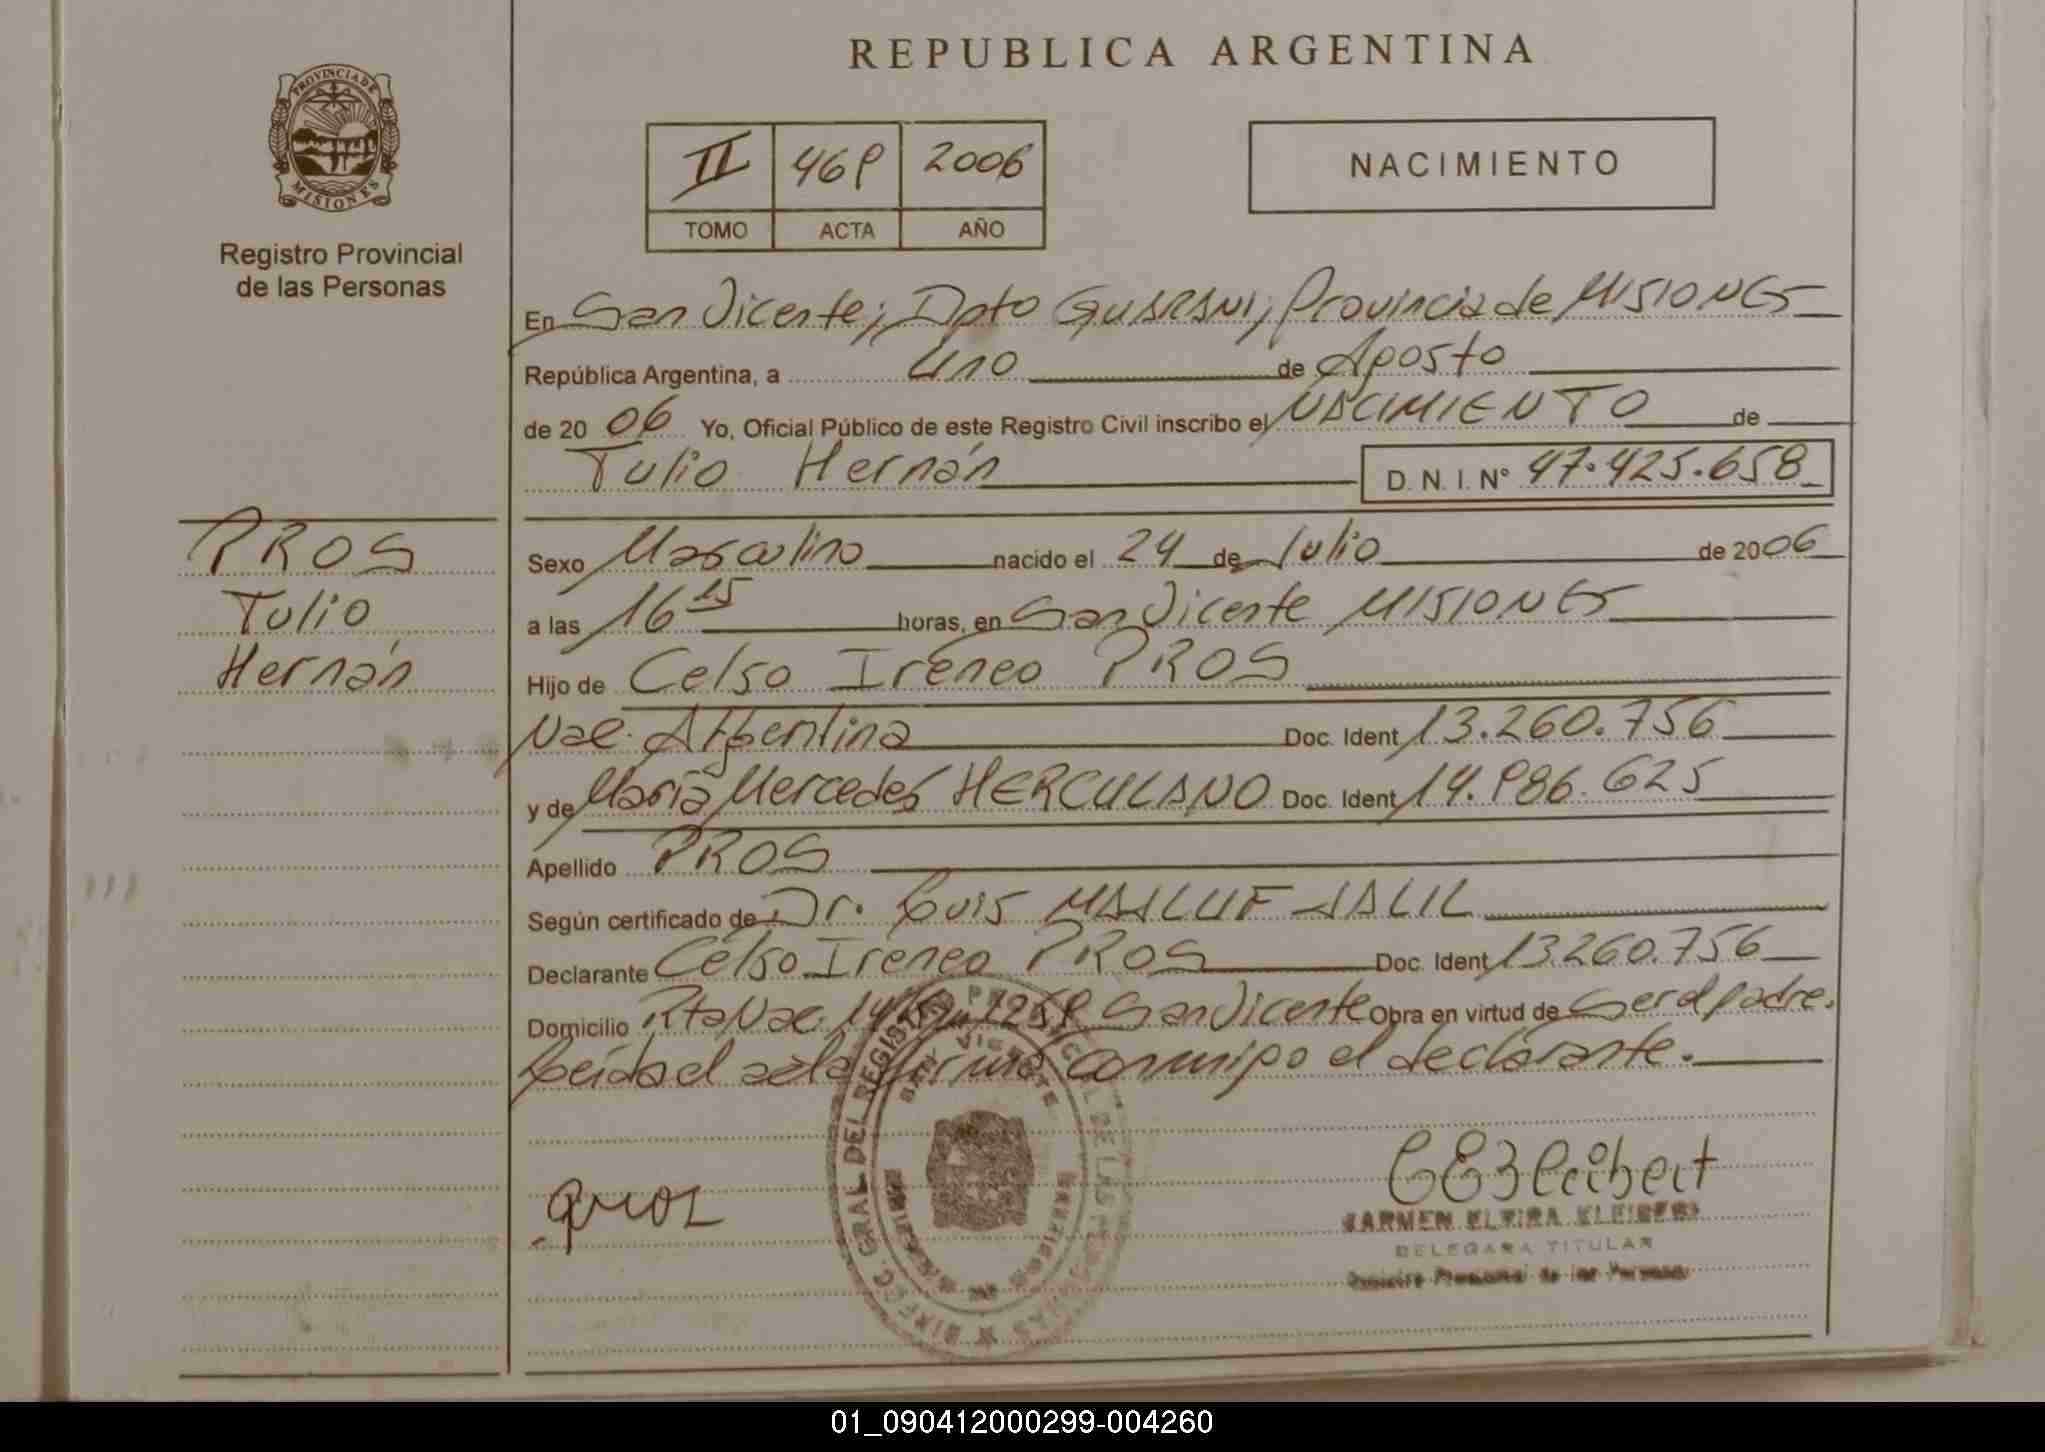 REPUBLICA ARGENTINA
PROVINCIA DE
MISIONES
Registro Provincial
de las Personas
II 469 2006
TOMO ACTA AÑO
NACIMIENTO
En San Vicente; Dpto GUARANI; Provincia de MISIONES
República Argentina, a uno de Agosto
de 2006 Yo, Oficial Público de este Registro Civil inscribo el NACIMIENTO de
Tulio Hernán D. N. I. N° 47.425.658
PROS
Tulio
Hernán
Sexo Masculino nacido el 24 de Julio de 2006
a las 16 15 horas, en San Vicente MISIONES
Hijo de Celso Ireneo PROS
Nac. Argentina Doc. Ident 13.260.756
y de María Mercedes HERCULANO Doc. Ident 14.986.625
Apellido PROS
Según certificado de Dr. Luis MAILUF JALIL
Declarante Celso Ireneo PROS Doc. Ident 13.260.756
Domicilio Rta Nac. 14 San Vicente Obra en virtud de ser el padre.
Leída el acta firma conmigo el declarante.
DIREC. GRAL. DEL REGISTRO PROVINCIAL DE LAS PERSONAS
SAN VICENTE
MISIONES
CARMEN ELVIRA KLEIBERT
DELEGADA TITULAR
Registro Provincial de las Personas
01_090412000299-004260